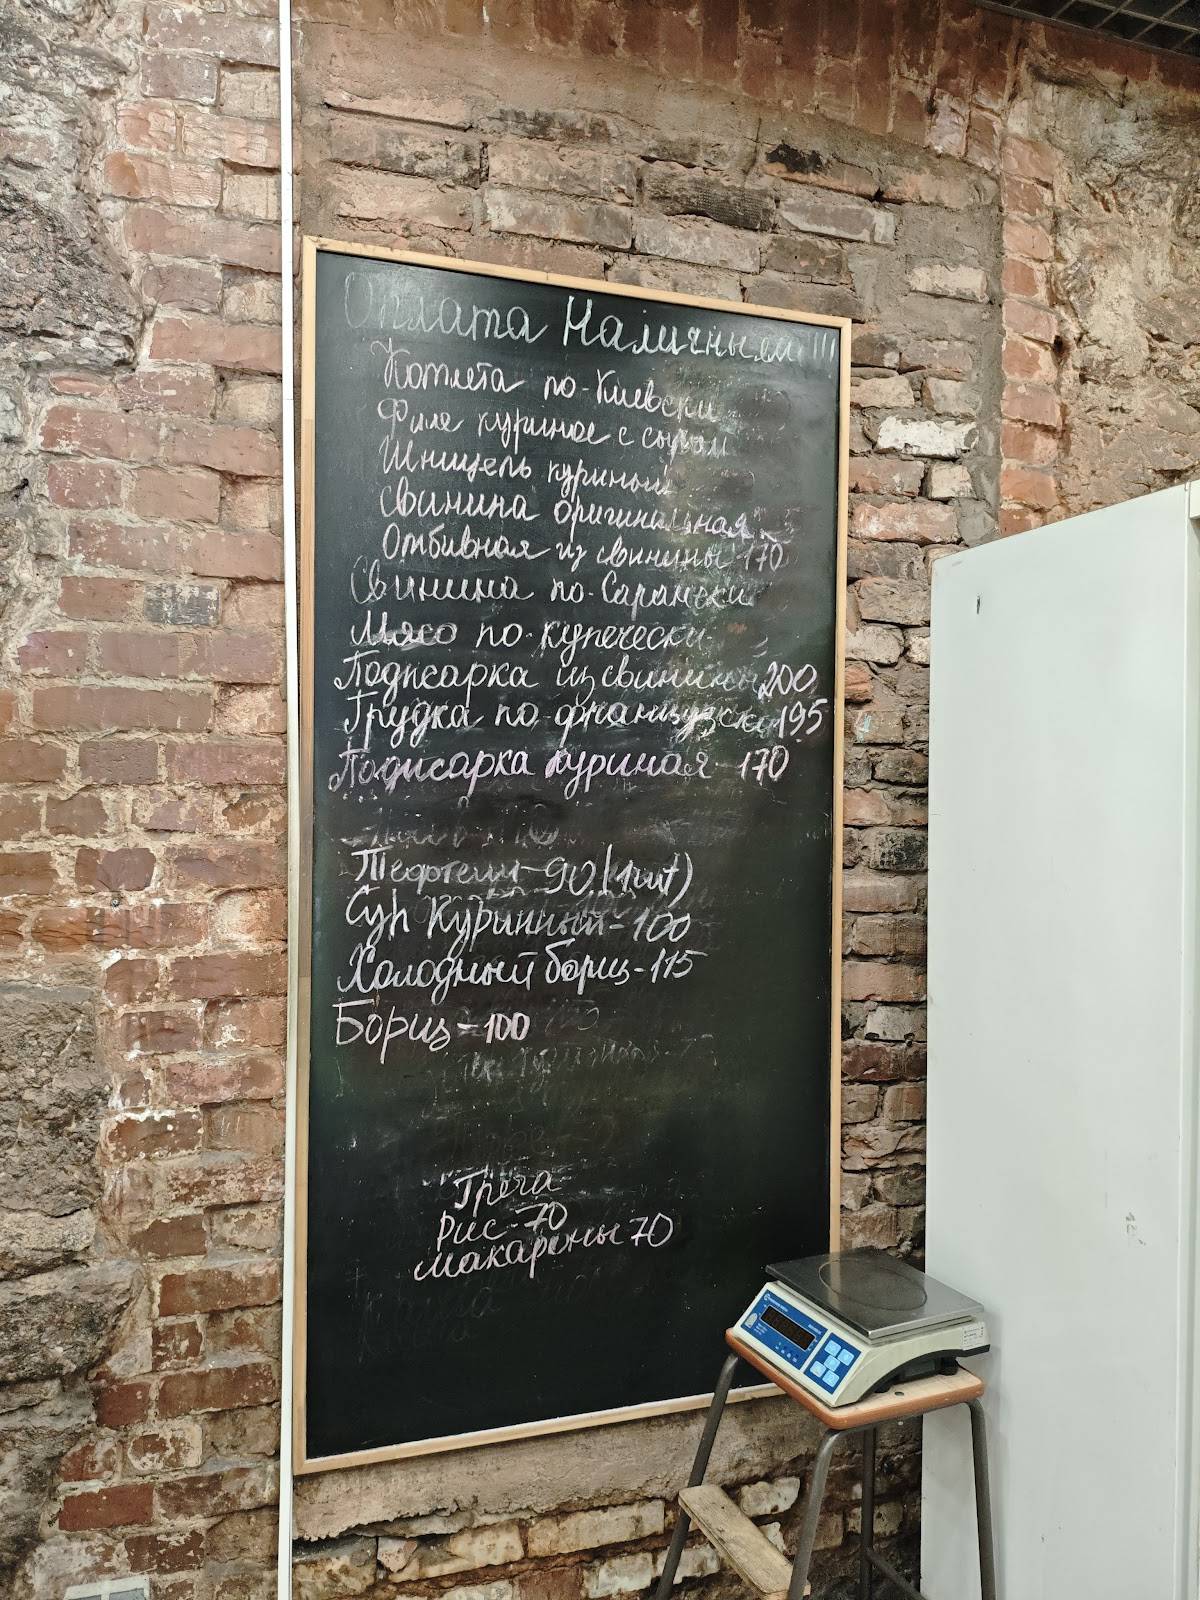 Оплата Наличными !!!
Котлета по-Киевски
Филе куриное с сыром
Шницель куриный
Свинина оригинальная
Отбивная из свинины 170
Свинина по-Сарански
Мясо по-купечески
Поджарка из свинины 200
Грудка по-французски 195
Поджарка куриная - 170
Тефтели - 90 (1шт)
Суп Куринный - 100
Холодный борщ - 115
Борщ - 100
Греча
Рис - 70
макароны 70